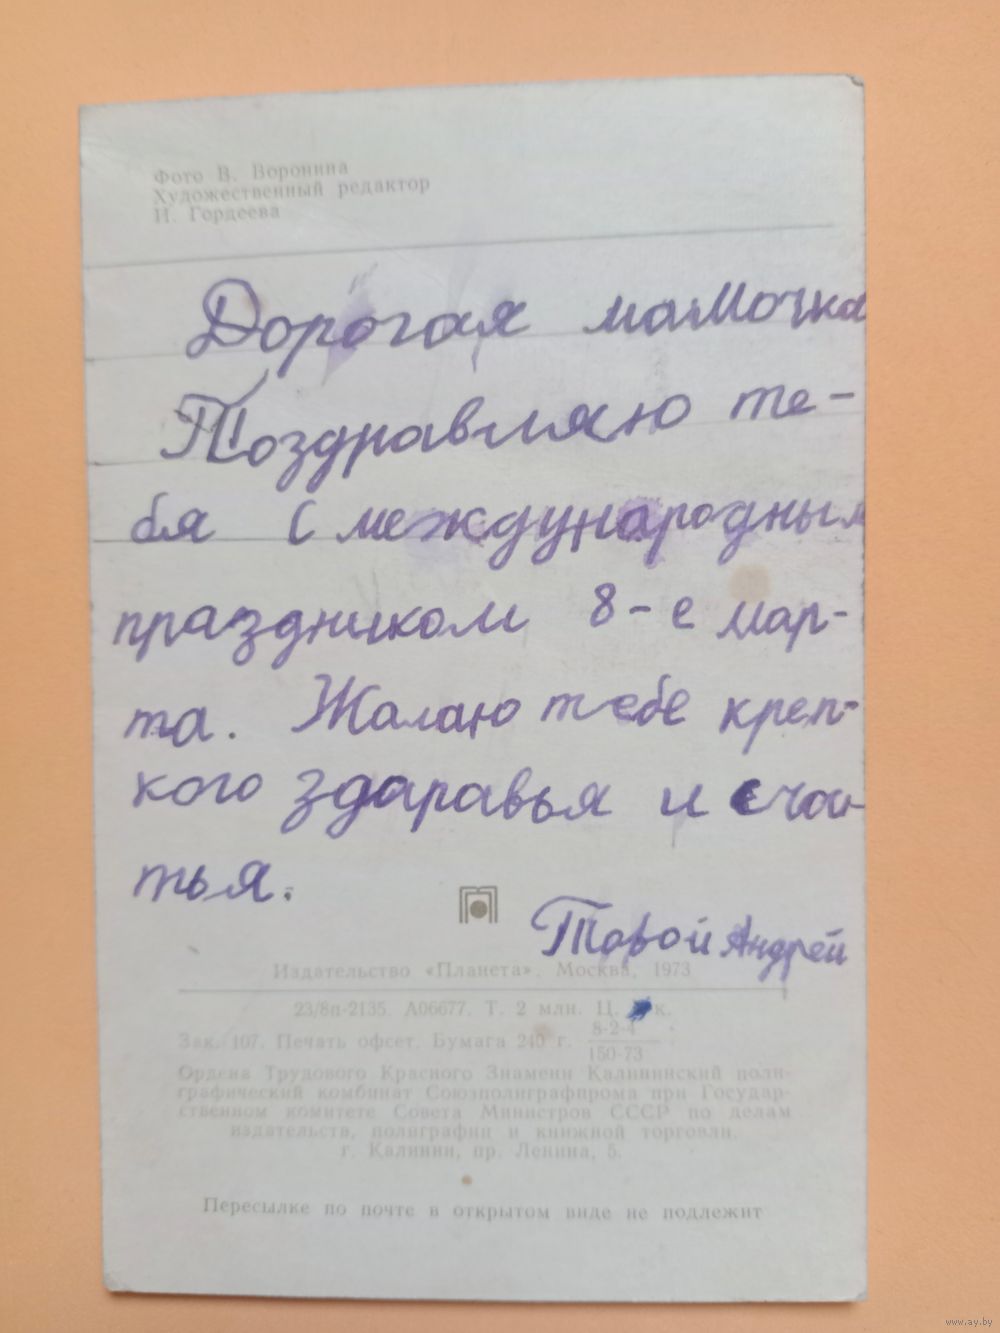 Фото В. Воронина
Художественный редактор
И. Гордеева
Дорогая мамочка
Поздравляю те-
бя с международным
праздником 8-е мар-
та. Жалаю тебе креп-
кого здаравья и счас-
тья.
Тавой Андрей
Издательство «Планета». Москва, 1973
23/8п-2135. А06677. Т. 2 млн. Ц. к.
Зак. 107. Печать офсет. Бумага 240 г. 8-2-4
150-73
Ордена Трудового Красного Знамени Калининский поли-
графический комбинат Союзполиграфпрома при Государ-
ственном комитете Совета Министров СССР по делам
издательств, полиграфии и книжной торговли.
г. Калинин, пр. Ленина, 5.
Пересылке по почте в открытом виде не подлежит
www.ay.by